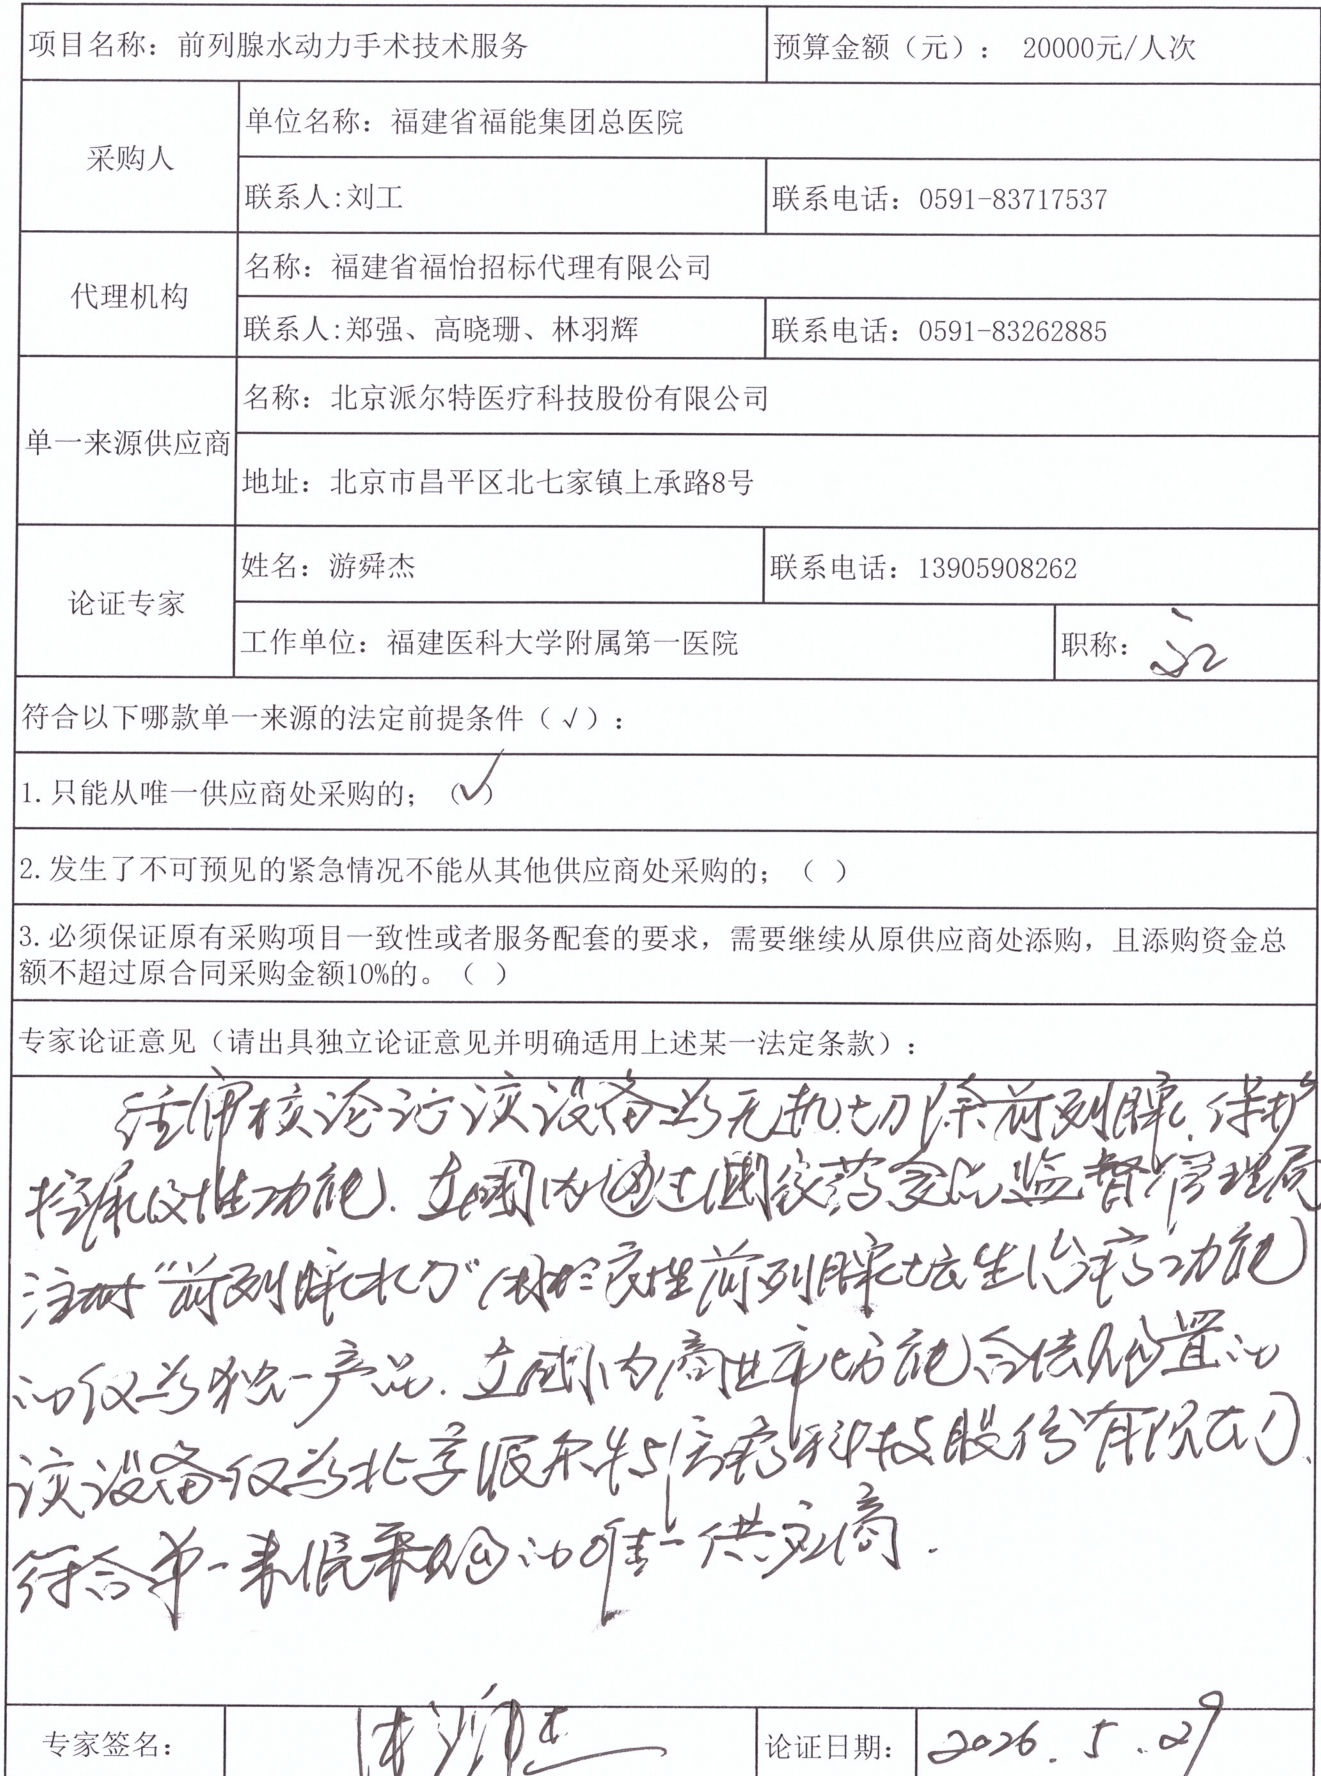 项目名称：前列腺水动力手术技术服务
预算金额（元）： 20000元/人次
采购人
单位名称：福建省福能集团总医院
联系人:刘工
联系电话：0591-83717537
代理机构
名称：福建省福怡招标代理有限公司
联系人:郑强、高晓珊、林羽辉
联系电话：0591-83262885
单一来源供应商
名称：北京派尔特医疗科技股份有限公司
地址：北京市昌平区北七家镇上承路8号
论证专家
姓名：游舜杰
联系电话：13905908262
工作单位：福建医科大学附属第一医院
职称：
符合以下哪款单一来源的法定前提条件（√）：
1.只能从唯一供应商处采购的；（✓）
2.发生了不可预见的紧急情况不能从其他供应商处采购的；（ ）
3.必须保证原有采购项目一致性或者服务配套的要求，需要继续从原供应商处添购，且添购资金总
额不超过原合同采购金额10%的。（ ）
专家论证意见（请出具独立论证意见并明确适用上述某一法定条款）：
经审核论证该设备为无热切除前列腺、保护
控尿及性功能．在国内通过国家药食品监督管理局
注册“前列腺水力”（用于良性前列腺增生治疗功能）
的仅为独一产品．在国内商业化功能合法购置的
该设备仅为北京派尔特医疗科技股份有限公司．
符合单一来源采购的唯一供应商．
专家签名：
游舜杰
论证日期：
2026.5.29